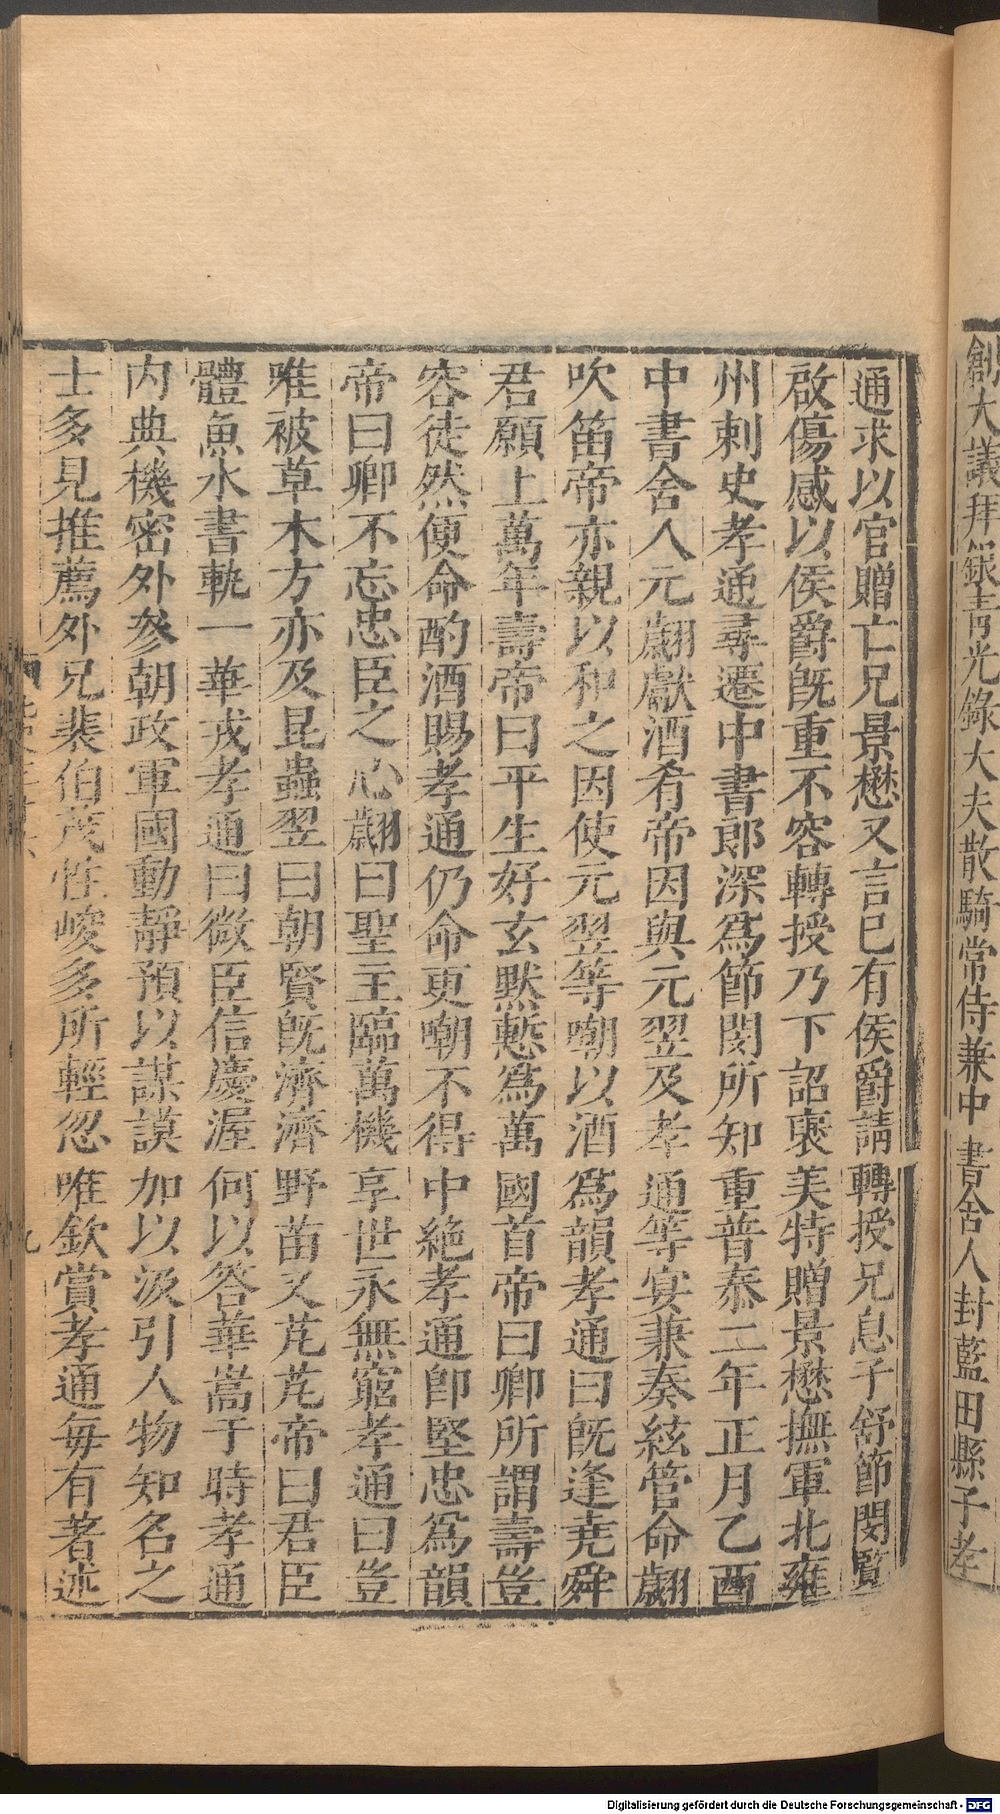 創大議拜銀青光錄大夫散騎常侍兼中書舍人封藍田縣子孝
通求以官贈亡兄景懋又言已有侯爵請轉授兄息子舒節閔覽
啟傷感以侯爵旣重不容轉授乃下詔襃美特贈景懋撫軍北雍
州刺史孝通尋遷中書郎深爲節閔所知重普泰二年正月乙酉
中書舍人元翽獻酒肴帝因與元翌及孝通等宴兼奏絃管命翽
吹笛帝亦親以和之因使元翌等嘲以酒爲韻孝通曰旣逢堯舜
君願上萬年壽帝曰平生好玄默慙爲萬國首帝曰卿所謂壽豈
容徒然便命酌酒賜孝通仍命更嘲不得中絶孝通卽堅忠爲韻
帝曰卿不忘忠臣之心翽曰聖主臨萬機享世永無窮孝通曰豈
唯被草木方亦及昆蟲翌曰朝賢旣濟濟野苗又芃芃帝曰君臣
體魚水書軌一華戎孝通曰微臣信慶渥何以答華嵩于時孝通
內典機密外參朝政軍國動靜預以謀謨加以汲引人物知名之
士多見推薦外兄裴伯茂性峻多所輕忽唯欽賞孝通每有著述
九
Digitalisierung gefördert durch die Deutsche Forschungsgemeinschaft - DFG